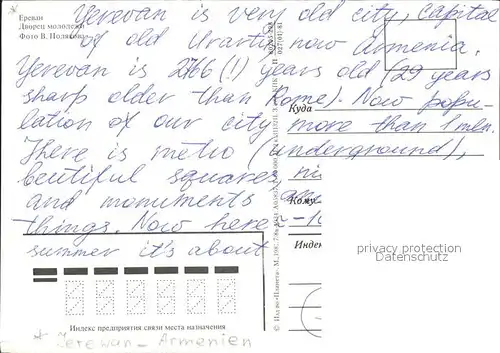 Ереван
Дворец молодежи
Фото В. Полякова
Yerevan is very old city, capital
of old Urartu, now Armenia.
Yerevan is 2766 (!) years old (29 years
sharp older than Rome). Now popu-
lation of our city more than 1 mln.
There is metro (underground),
beutiful squares,
and monuments
things. Now here
summer it's about
Куда
Кому
Индекс
privacy protection
DatenSchutz
Индекс предприятия связи места назначения
* Jerewan - Armenien